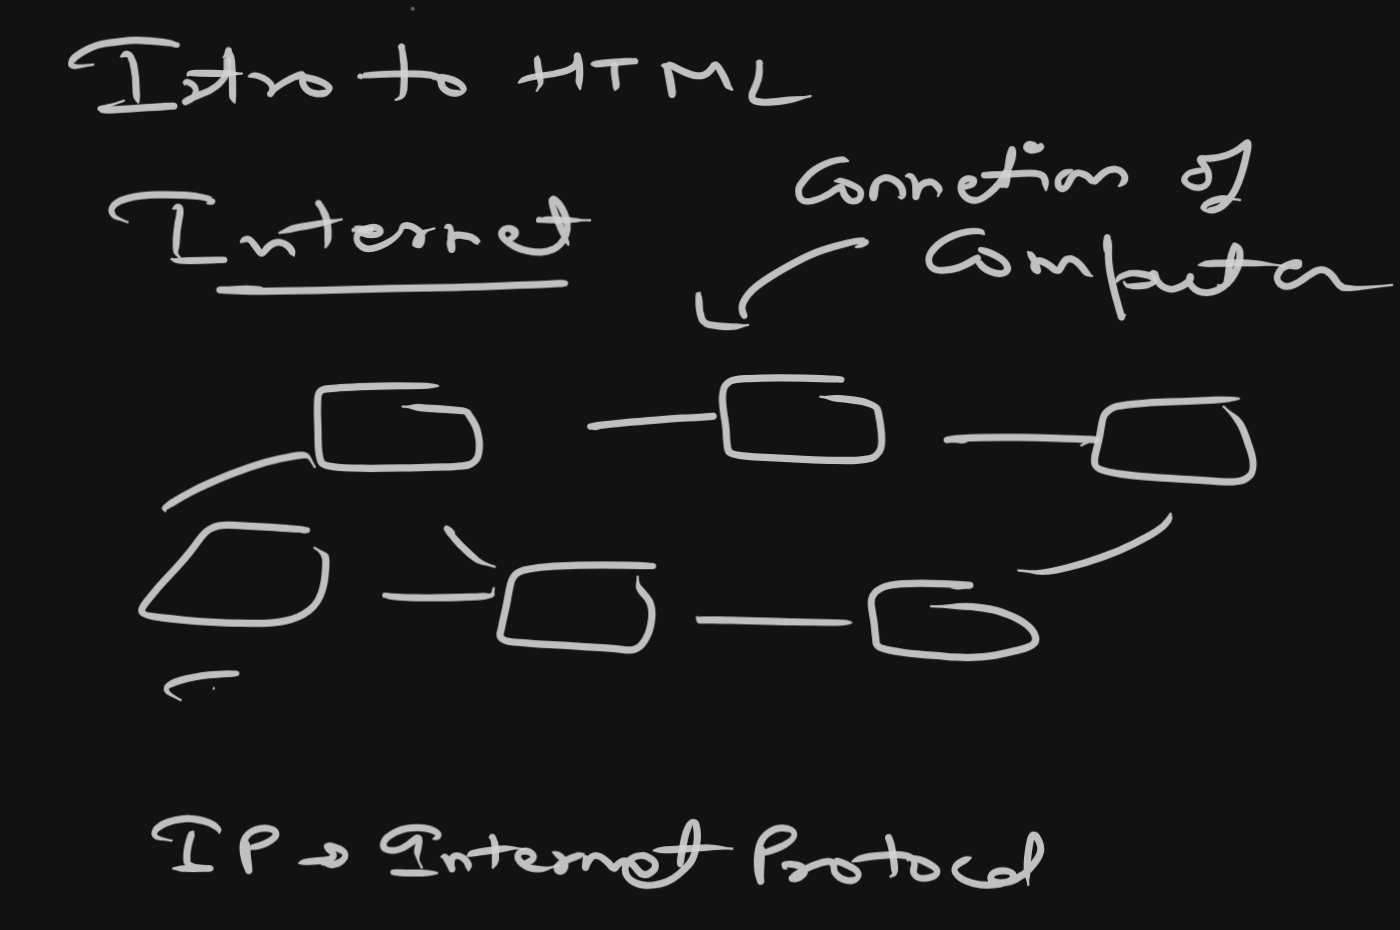 Intro to HTML
Internet
Connetion of
Computer
IP → Internet Protocol